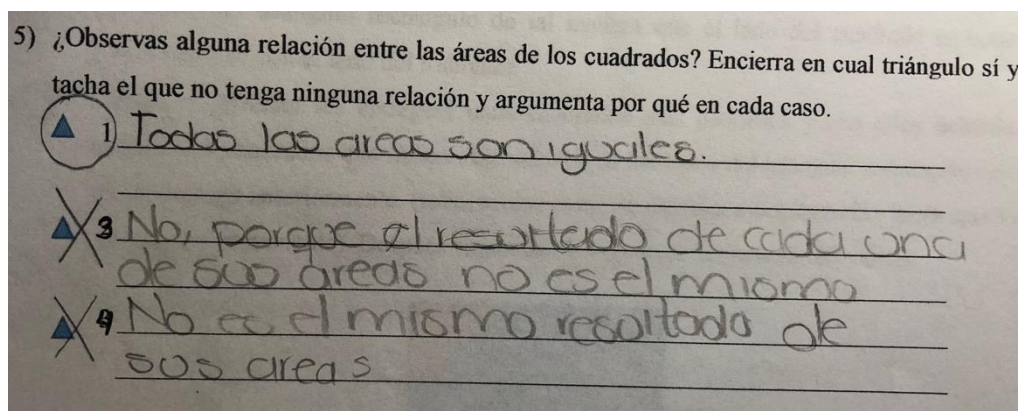 5) ¿Observas alguna relación entre las áreas de los cuadrados? Encierra en cual triángulo sí y
tacha el que no tenga ninguna relación y argumenta por qué en cada caso.
1) Todas las areas son iguales.
3 No, porque el resultado de cada una
de sus áreas no es el mismo
4 No es el mismo resoltado de
sus areas